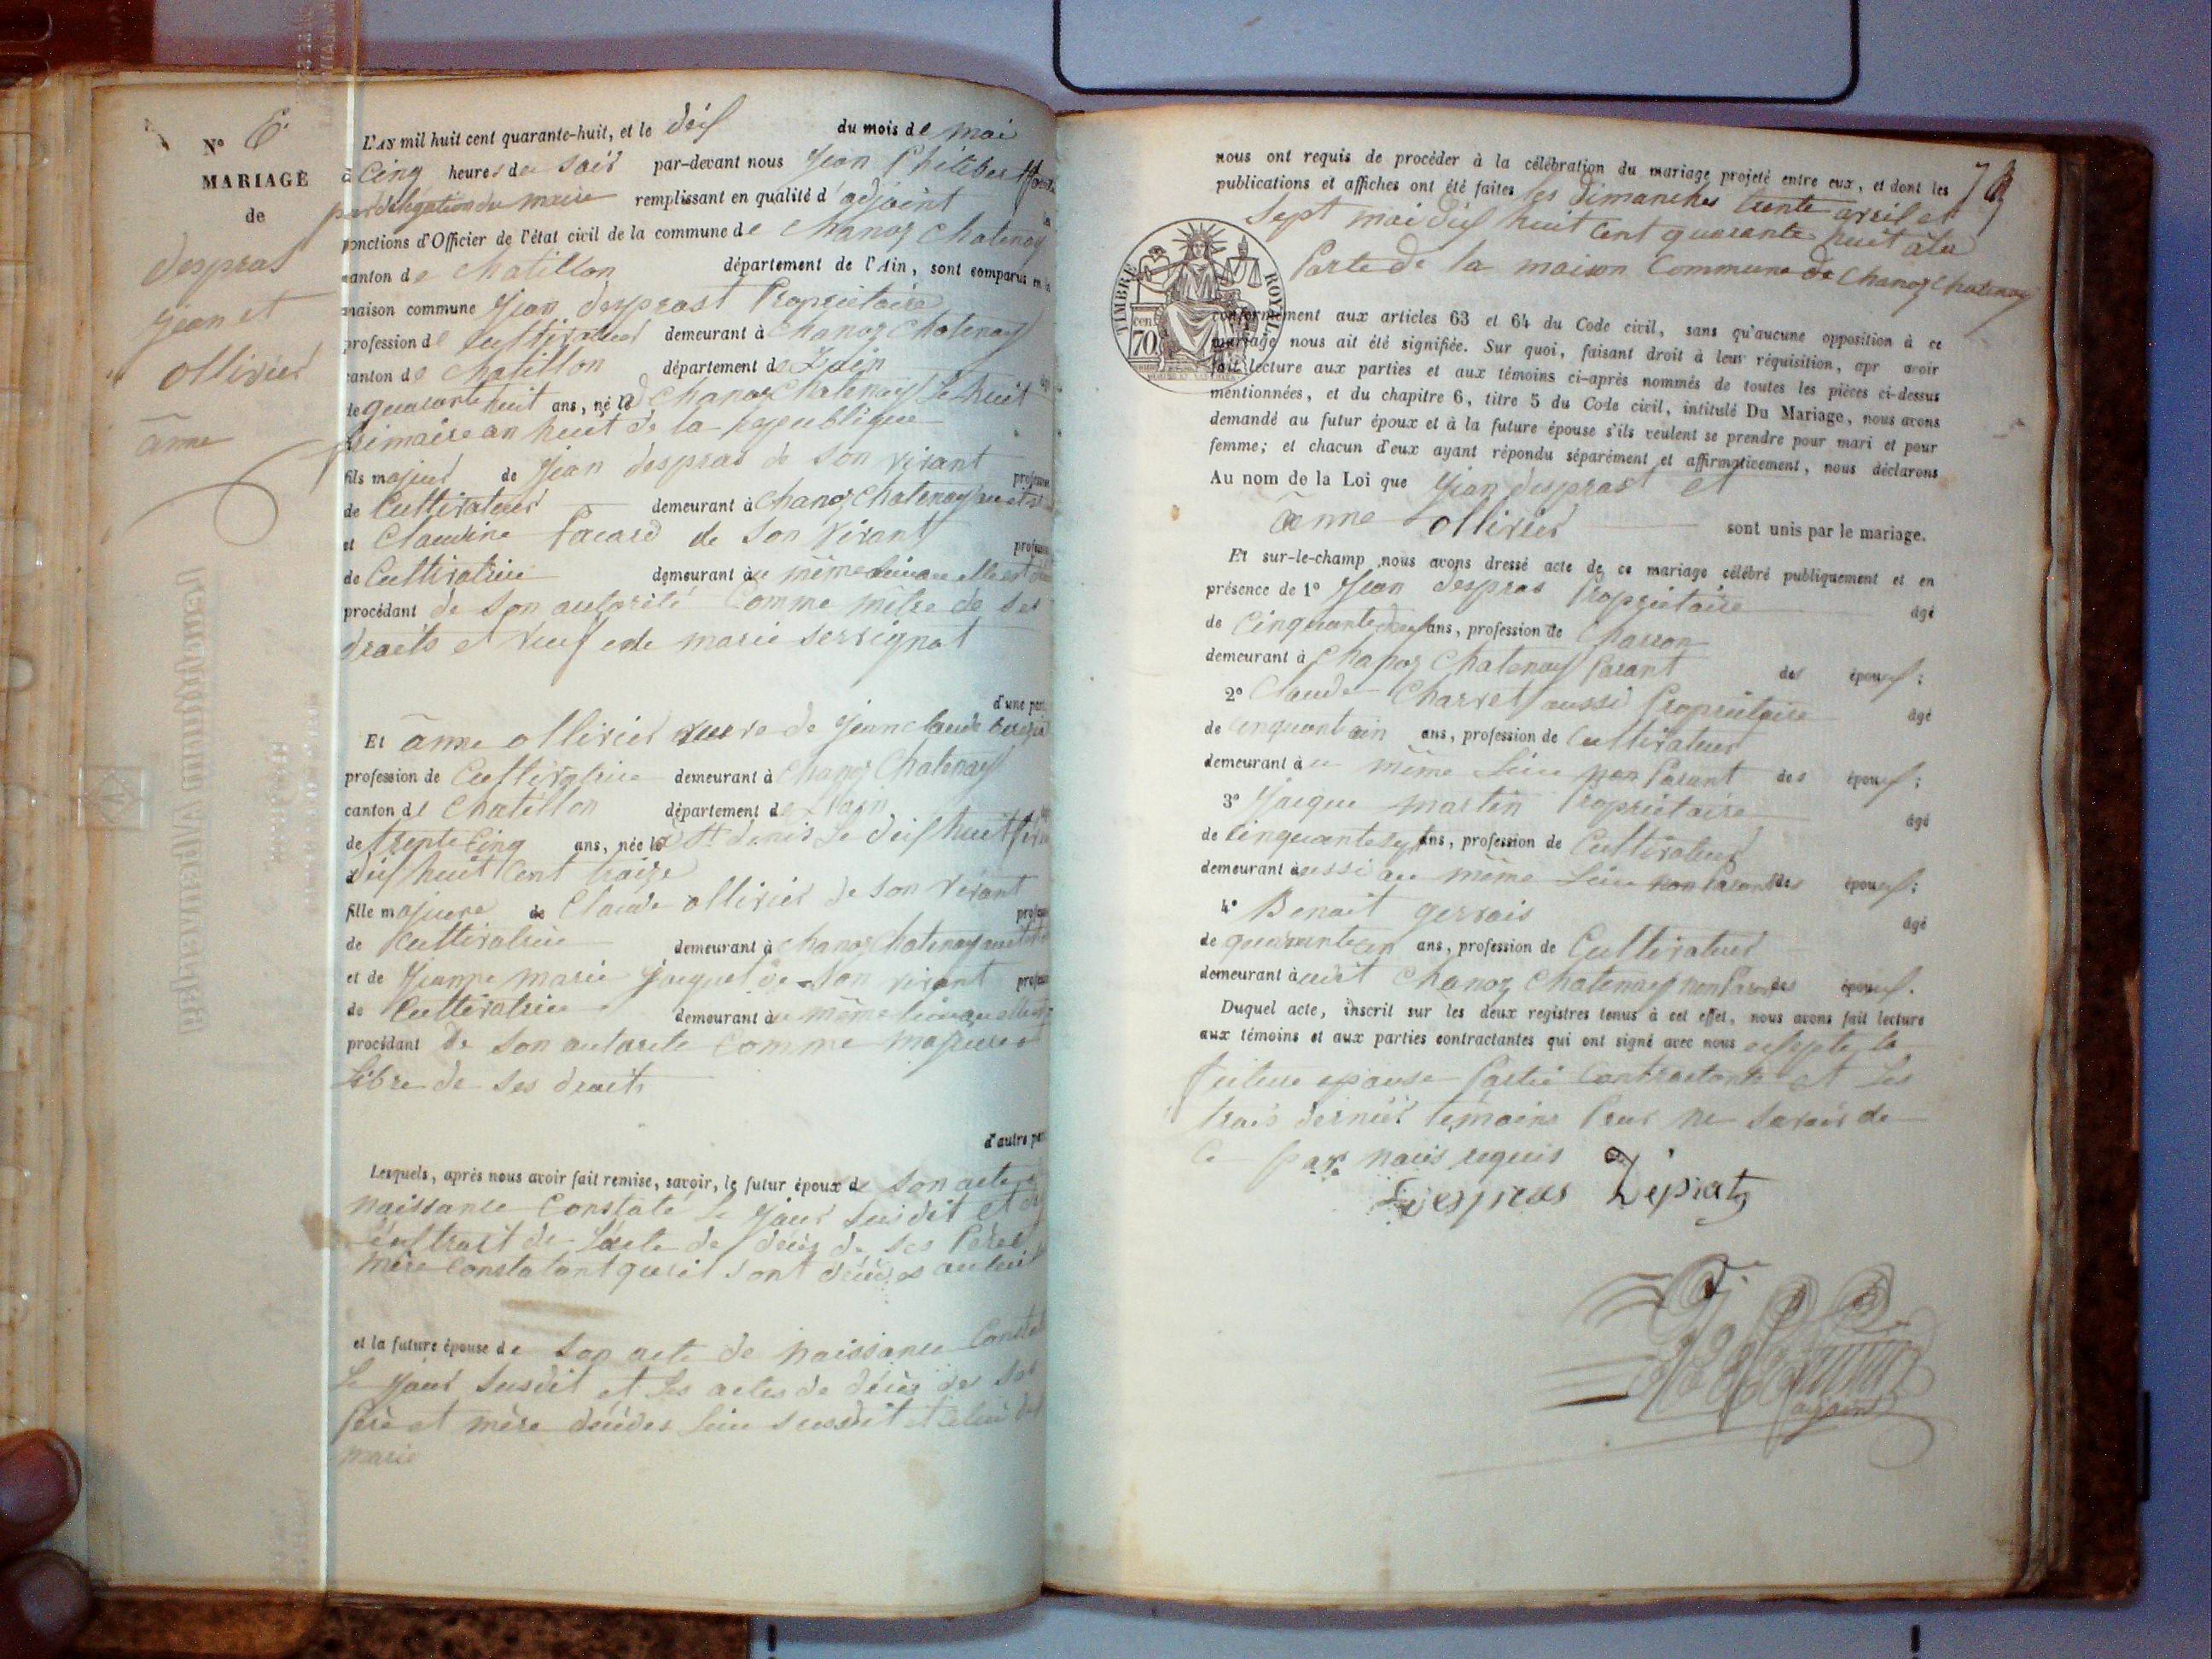 N° 6
MARIAGE
de
Despras
Jean et
ollivier
anne
L'AN mil huit cent quarante-huit, et le dix du mois de mai
à Cinq heures du soir par-devant nous Jean Philibert
par délégation du maire remplissant en qualité d'adjoint les
fonctions d'Officier de l'état civil de la commune de Chanoz Chatenay
canton de Chatillon département de l'Ain, sont comparus en la
maison commune Jean despras Propriétaire
profession de Cultivateur demeurant à Chanoz Chatenay
canton de Chatillon département de L'ain
de quarante huit ans, né à Chanoz Chatenay le huit
frimaire an huit de la republique
fils majeur de Jean despras de son vivant profession
de Cultivateur demeurant à Chanoz Chatenay
et Claudine Pacard de son vivant profession
de Cultivatrice demeurant au même lieu
procédant de son autorité Comme mitre de ses
droits et veuf de marie serrignat
d'une part
Et anne ollivier veuve de Jean Claude
profession de Cultivatrice demeurant à Chanoz Chatenay
canton de Chatillon département de L'ain
de trente Cinq ans, née à St denis le dix huit
dix huit Cent traize
fille majeure de Claude ollivier de son vivant profession
de Cultivatrice demeurant à Chanoz Chatenay
et de Jeanne marie Jacquet de son vivant profession
de Cultivatrice demeurant au même lieu
procédant de son autorité Comme majeure
libre de ses droits
d'autre part
Lesquels, après nous avoir fait remise, savoir, le futur époux de son acte
naissance Constaté le Jour susdit et
l'extrait de l'acte de décès de ses Père
mère Constatant qu'il sont décédés
et la future épouse de son acte de naissance Constaté
le Jour susdit et les actes de décès de ses
Père et mère décédés lieu susdit et celui
marie
73
nous ont requis de procéder à la célébration du mariage projeté entre eux, et dont les
publications et affiches ont été faites les dimanches trente avril et
Sept mai dix huit Cent quarante huit à la
Porte de la maison Commune de Chanoz Chatenay
TIMBRE ROYAL
cent. 70
conformément aux articles 63 et 64 du Code civil, sans qu'aucune opposition à ce
mariage nous ait été signifiée. Sur quoi, faisant droit à leur réquisition, apr avoir
fait lecture aux parties et aux témoins ci-après nommés de toutes les pièces ci-dessus
mentionnées, et du chapitre 6, titre 5 du Code civil, intitulé Du Mariage, nous avons
demandé au futur époux et à la future épouse s'ils veulent se prendre pour mari et pour
femme; et chacun d'eux ayant répondu séparément et affirmativement, nous déclarons
Au nom de la Loi que Jean despras et
anne ollivier sont unis par le mariage.
Et sur-le-champ nous avons dressé acte de ce mariage célébré publiquement et en
présence de 1° Jean despras Propriétaire âgé
de Cinquante deux ans, profession de Charron
demeurant à Chanoz Chatenay Parant des époux;
2° Claude Charvet aussi Propriétaire âgé
de Cinquant un ans, profession de Cultivateur
demeurant au même lieu non Parant des époux;
3° Jacque martin Propriétaire âgé
de Cinquante sept ans, profession de Cultivateur
demeurant aussi au même lieu non Parant des époux;
4° Benoit gervais âgé
de quarante un ans, profession de Cultivateur
demeurant à Chanoz Chatenay non Parant des époux.
Duquel acte, inscrit sur les deux registres tenus à cet effet, nous avons fait lecture
aux témoins et aux parties contractantes qui ont signé avec nous excepté la
future épouse Partie Contractante et les
trois dernier témoins Pour ne savoir de
Ce par nous requis
Despras Depraz
adjoint